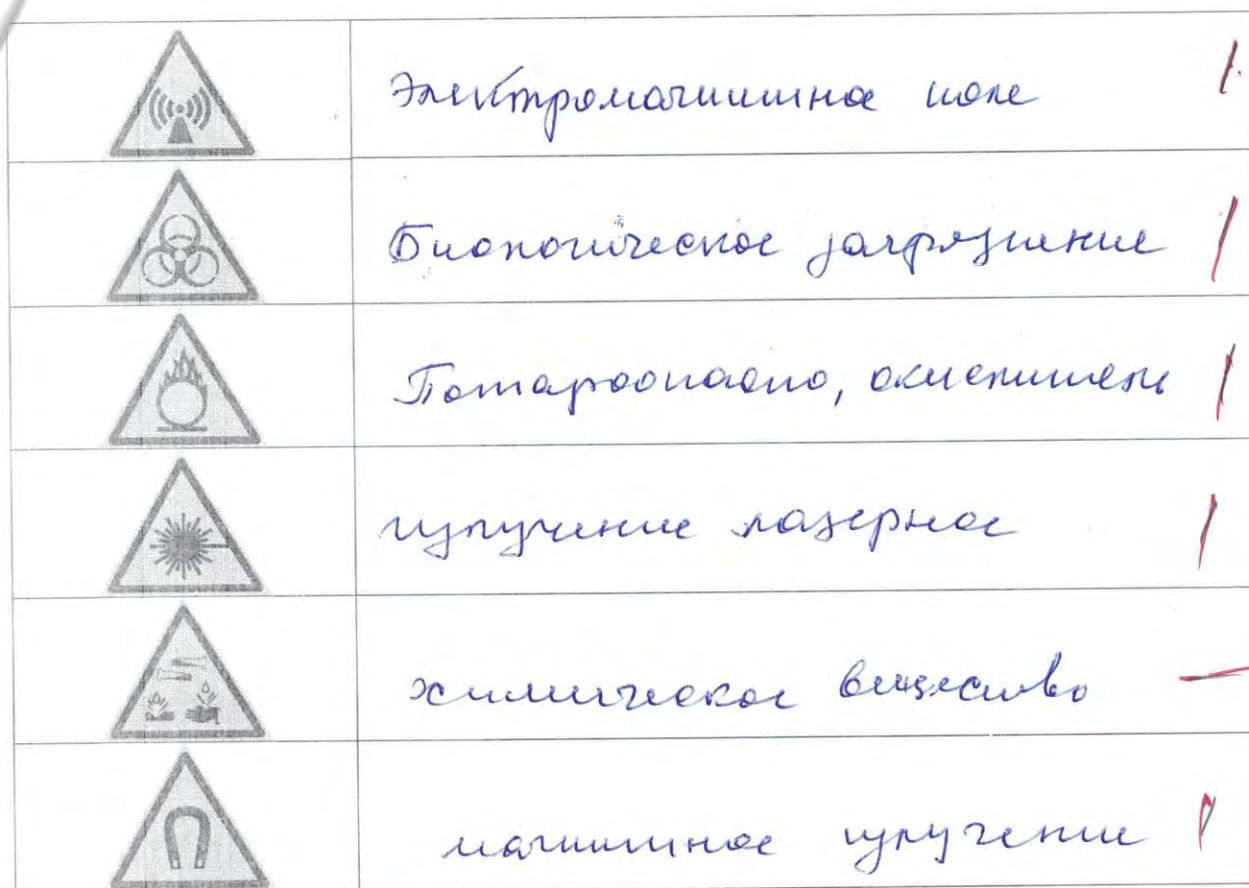 Электромагнитное поле
Биологическое загрязнение
Пожароопасно, окислитель
излучение лазерное
химическое вещество
магнитное излучение